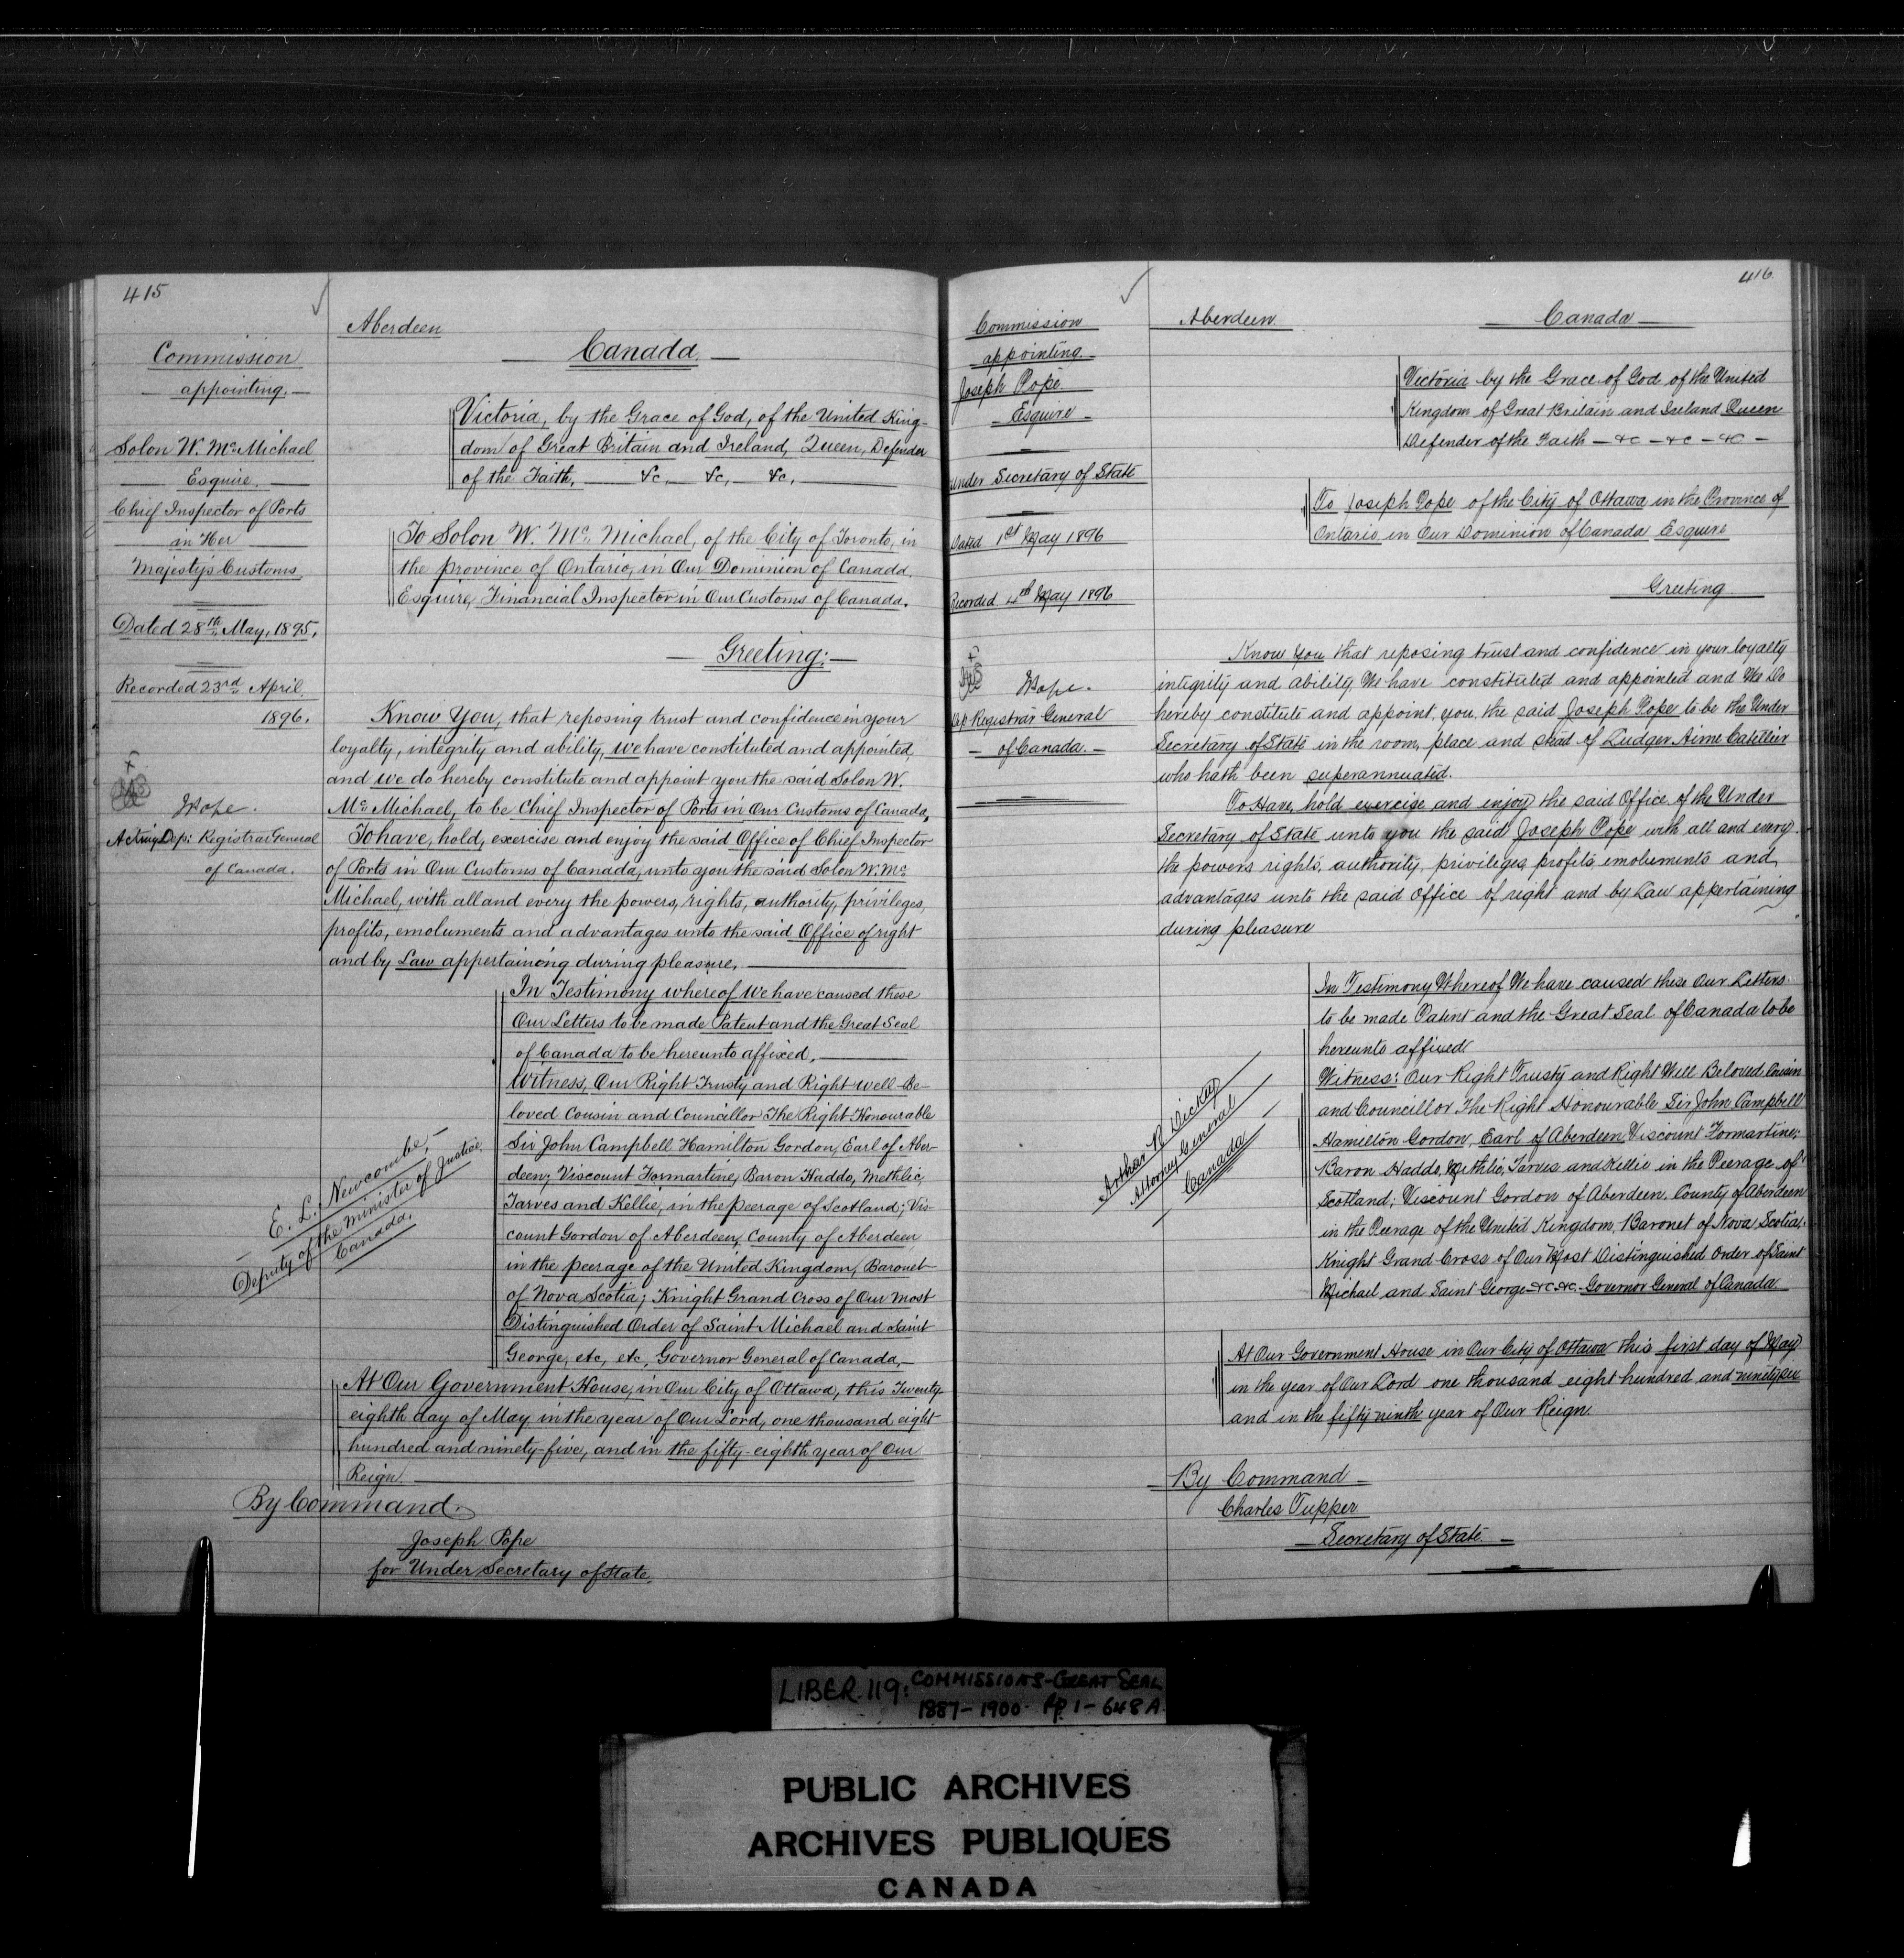 415
Commission
appointing.
Solon W. McMichael
Esquire.
Chief Inspector of Ports
in Her
Majesty's Customs
Dated 28th May, 1895.
Recorded 23rd April
1896.
JPope.
Acting Dep: Registrar General
of Canada.
E. L. Newcombe,
Deputy of the Minister of Justice,
Canada.
Aberdeen
Canada.
Victoria, by the Grace of God, of the United King-
dom of Great Britain and Ireland, Queen, Defender
of the Faith, &c, &c, &c,
To Solon W. Mc Michael, of the City of Toronto, in
the province of Ontario, in Our Dominion of Canada.
Esquire, Financial Inspector in Our Customs of Canada.
Greeting:
Know You, that reposing trust and confidence in your
loyalty, integrity and ability, we have constituted and appointed,
and we do hereby constitute and appoint you the said Solon W.
Mc Michael, to be Chief Inspector of Ports in Our Customs of Canada,
To have, hold, exercise and enjoy the said Office of Chief Inspector
of Ports in Our Customs of Canada, unto you the said Solon W. Mc
Michael, with all and every the powers, rights, authority, privileges,
profits, emoluments and advantages unto the said Office of right
and by Law appertaining during pleasure.
In Testimony whereof We have caused these
Our Letters to be made Patent and the Great Seal
of Canada to be hereunto affixed.
Witness, Our Right Trusty and Right well-Be-
loved Cousin and Councillor The Right Honourable
Sir John Campbell Hamilton Gordon, Earl of Aber-
deen; Viscount Formartine, Baron Haddo, Methlic,
Tarves and Kellie, in the peerage of Scotland; Vis-
count Gordon of Aberdeen, County of Aberdeen
in the peerage of the United Kingdom, Baronet
of Nova Scotia; Knight Grand Cross of Our Most
Distinguished Order of Saint Michael and Saint
George, etc, etc, Governor General of Canada,
At Our Government House, in Our City of Ottawa, this Twenty
eighth day of May in the year of Our Lord, one thousand eight
hundred and ninety-five, and in the fifty-eighth year of Our
Reign.
By Command.
Joseph Pope
for Under Secretary of State.
416
Commission
appointing
Joseph Pope
Esquire
Under Secretary of State
Dated 1st May 1896
Recorded 4th May 1896
JPope.
Dep Registrar General
of Canada.
Arthur R Dickey
Attorney General
Canada
Aberdeen
Canada
Victoria by the Grace of God of the United
Kingdom of Great Britain and Ireland Queen
Defender of the Faith &c &c &c
To Joseph Pope of the City of Ottawa in the Province of
Ontario in Our Dominion of Canada Esquire
Greeting
Know You that reposing trust and confidence in your loyalty
integrity and ability, We have constituted and appointed and We Do
hereby constitute and appoint, you, the said Joseph Pope to be the Under
Secretary of State in the room, place and stead of Ludger Aime Catellier
who hath been superannuated.
To Have, hold exercise and enjoy the said Office of the Under
Secretary of State unto you the said Joseph Pope with all and every
the powers rights, authority, privileges, profits, emoluments and
advantages unto the said Office of right and by Law appertaining
during pleasure
In Testimony Whereof We have caused these Our Letters
to be made Patent and the Great Seal of Canada to be
hereunto affixed
Witness: Our Right Trusty and Right Well Beloved Cousin
and Councillor The Right Honourable Sir John Campbell
Hamilton Gordon, Earl of Aberdeen, Viscount Formartine;
Baron Haddo, Methlic, Tarves and Kellie in the Peerage of
Scotland; Viscount Gordon of Aberdeen, County of Aberdeen
in the Peerage of the United Kingdom, Baronet of Nova Scotia,
Knight Grand Cross of Our Most Distinguished Order of Saint
Michael and Saint George &c &c. Governor General of Canada
At Our Government House in Our City of Ottawa this first day of May
in the year of Our Lord one thousand eight hundred and ninety six
and in the fifty ninth year of Our Reign.
By Command
Charles Tupper
Secretary of State.
LIBER. 119: COMMISSIONS-GREAT SEAL
1887-1900 Pp 1-648A.
PUBLIC ARCHIVES
ARCHIVES PUBLIQUES
CANADA